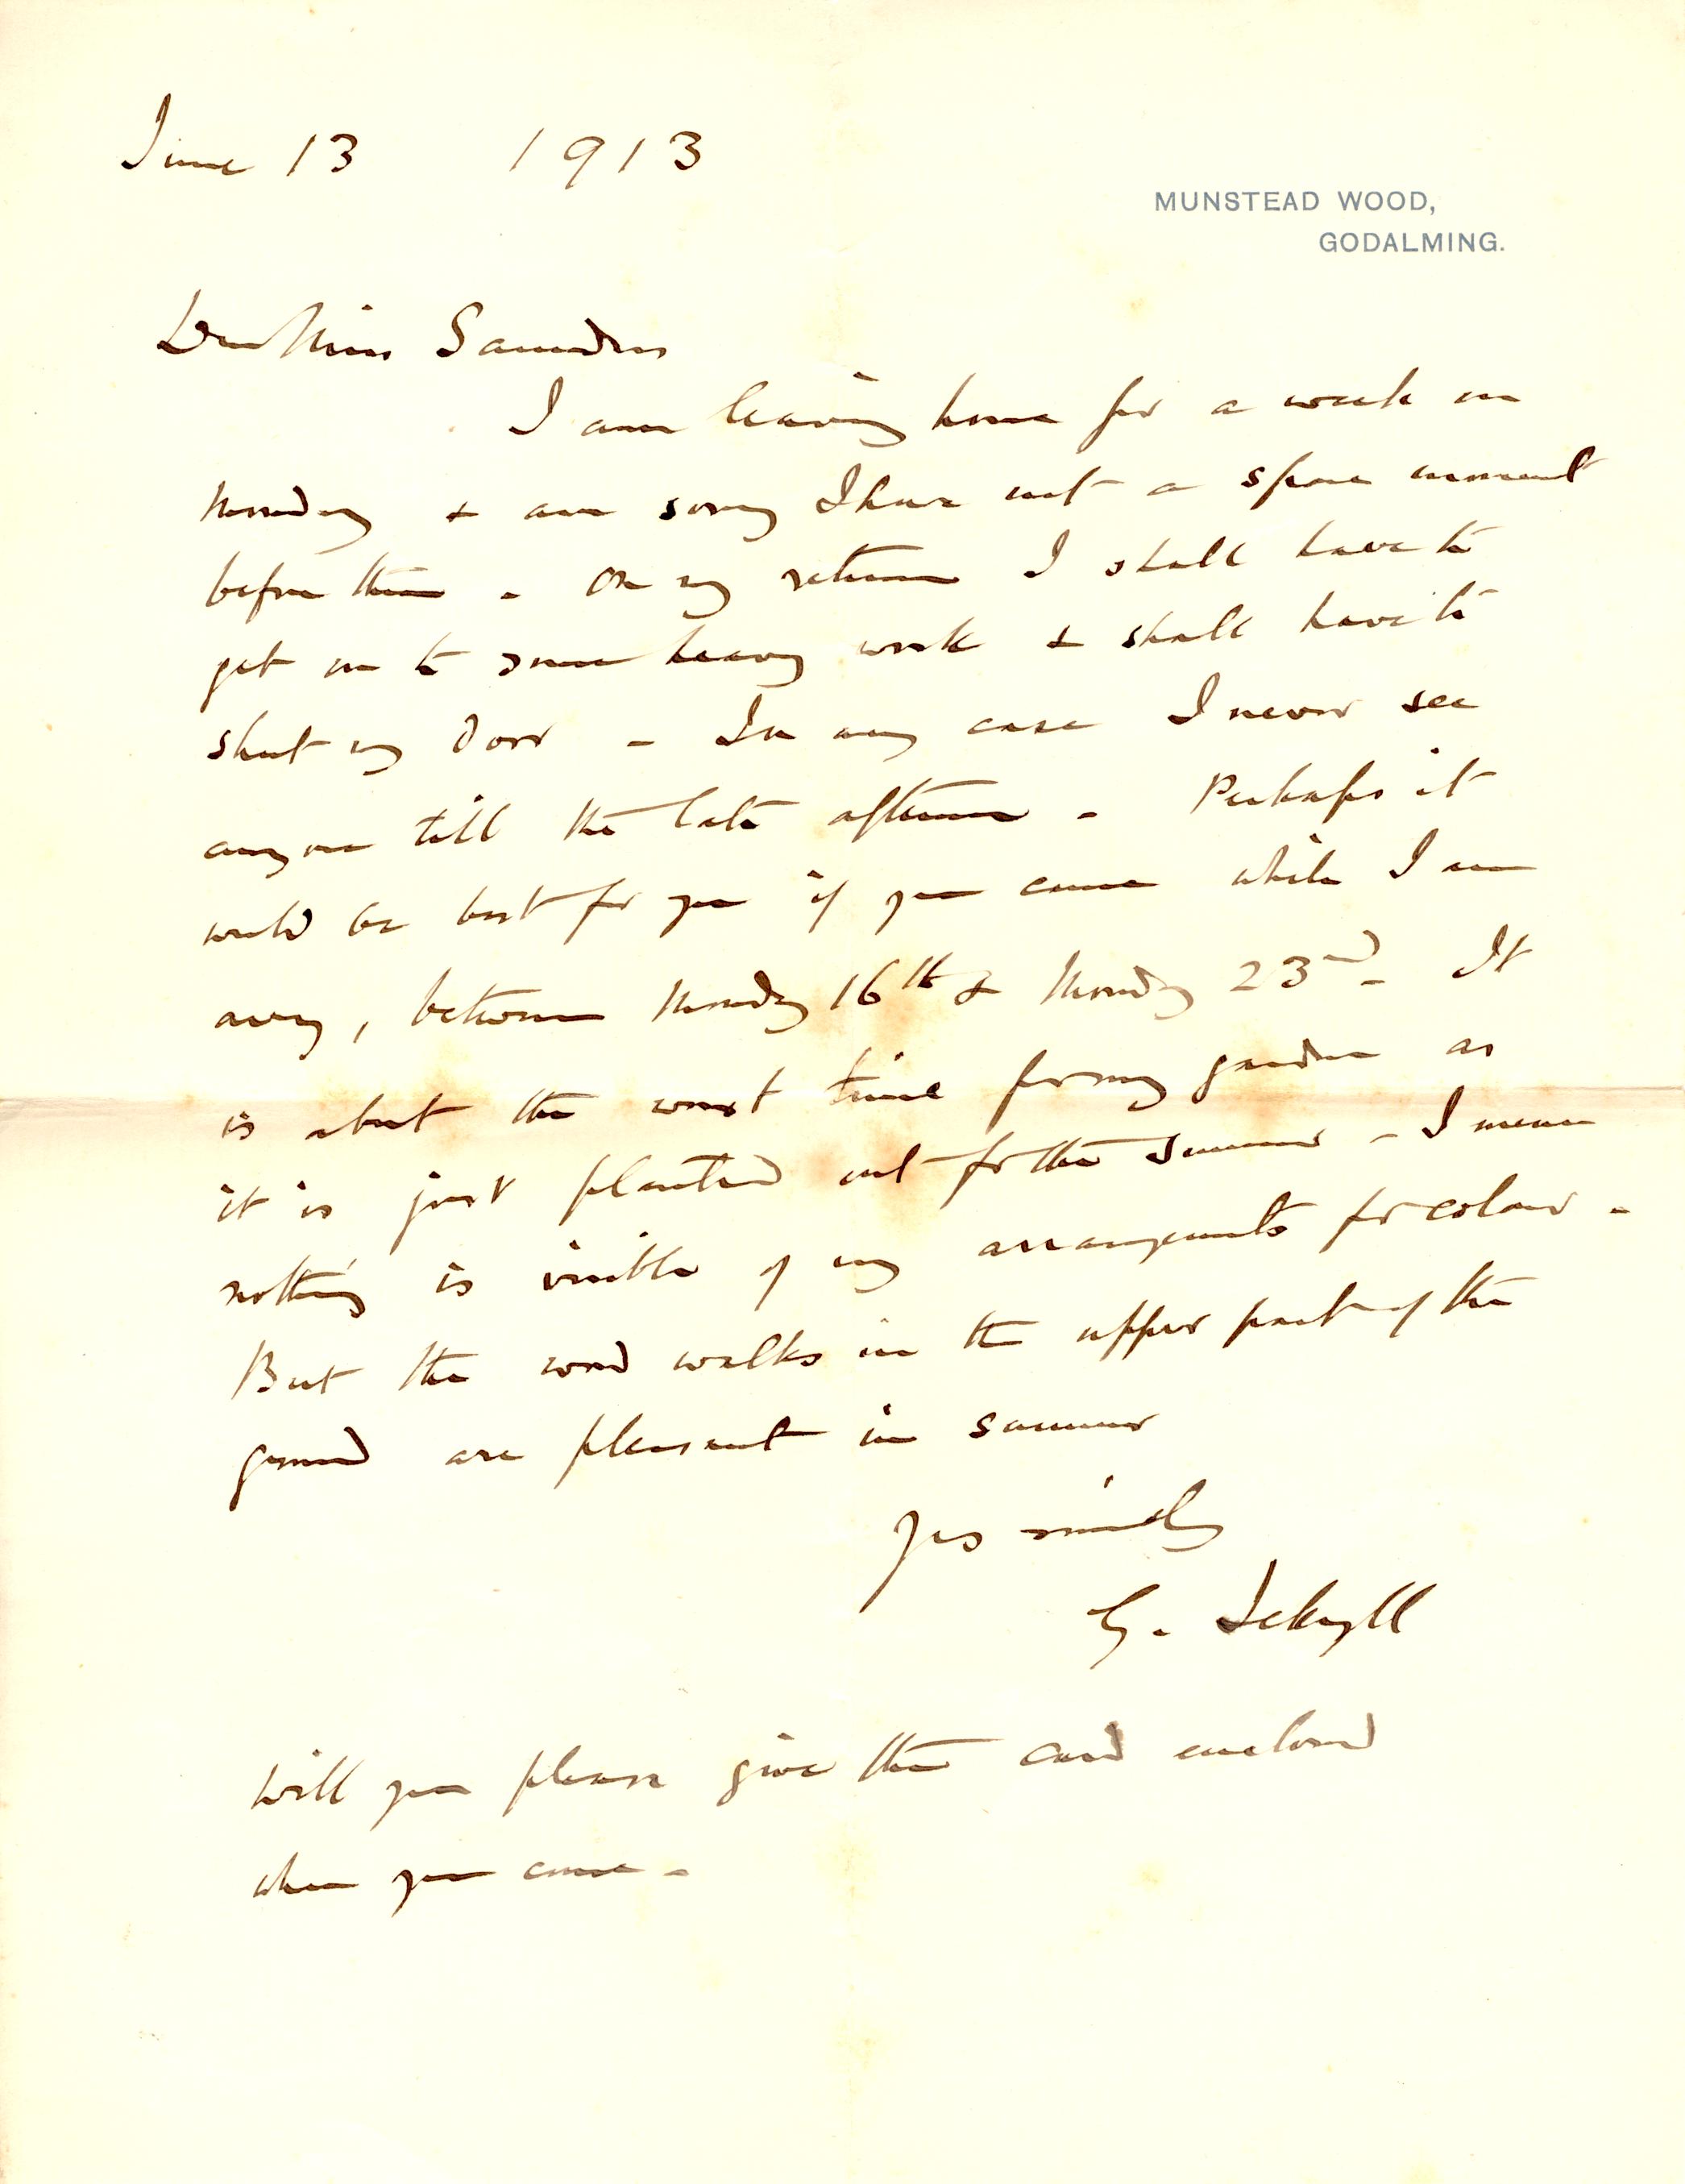 June 13 1913
MUNSTEAD WOOD,
GODALMING.
Dear Miss Saunders
I am leaving home for a week on
Monday & am sorry I have not a spare moment
before then - On my return I shall have to
get on to some heavy work & shall have to
shut my door - In any case I never see
anyone till the late afternoon - Perhaps it
would be best for you if you came while I am
away, between Monday 16th & Monday 23rd - It
is about the worst time for my garden as
it is just planted out for the summer - I mean
nothing is visible of my arrangements for colour -
But the wood walks in the upper part of the
ground are pleasant in summer
Yrs sincerely
G. Jekyll
Will you please give the card enclosed
when you come -